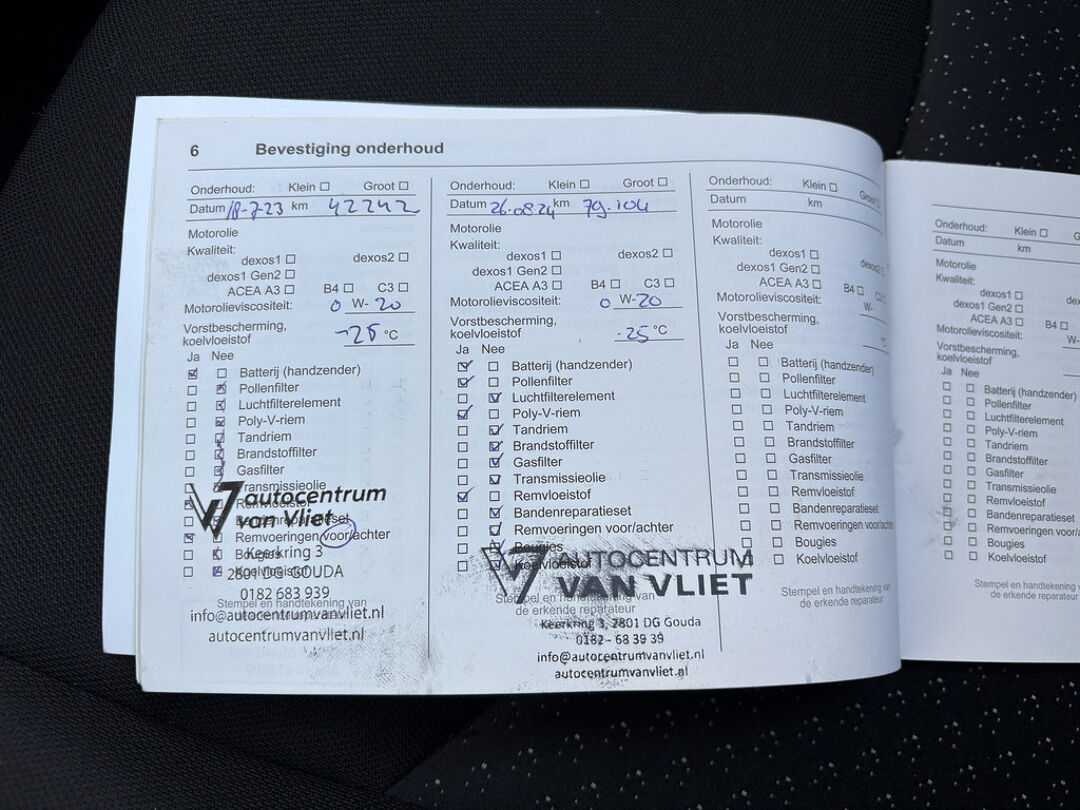 6 Bevestiging onderhoud
Onderhoud: Klein ☐ Groot ☐
Datum 18-7-23 km 42242
Motorolie
Kwaliteit:
dexos1 ☐ dexos2 ☐
dexos1 Gen2 ☐
ACEA A3 ☐ B4 ☐ C3 ☐
Motorolieviscositeit: 0 W-20
Vorstbescherming,
koelvloeistof -25 °C
Ja Nee
Batterij (handzender)
Pollenfilter
Luchtfilterelement
Poly-V-riem
Tandriem
Brandstoffilter
Gasfilter
Transmissieolie
Remvloeistof
Bandenreparatieset
Remvoeringen voor/achter
Bougies
Koelvloeistof
Stempel en handtekening van
autocentrum
van Vliet
Keerkring 3
2801 DG GOUDA
0182 683 939
info@autocentrumvanvliet.nl
autocentrumvanvliet.nl
Onderhoud: Klein ☐ Groot ☐
Datum 26-08-24 km 79.104
Motorolie
Kwaliteit:
dexos1 ☐ dexos2 ☐
dexos1 Gen2 ☐
ACEA A3 ☐ B4 ☐ C3 ☐
Motorolieviscositeit: 0 W-20
Vorstbescherming,
koelvloeistof -25 °C
Ja Nee
Batterij (handzender)
Pollenfilter
Luchtfilterelement
Poly-V-riem
Tandriem
Brandstoffilter
Gasfilter
Transmissieolie
Remvloeistof
Bandenreparatieset
Remvoeringen voor/achter
Bougies
Koelvloeistof
Stempel en handtekening van
de erkende reparateur
AUTOCENTRUM
VAN VLIET
Keerkring 3, 2801 DG Gouda
0182 - 68 39 39
info@autocentrumvanvliet.nl
autocentrumvanvliet.nl
Onderhoud: Klein ☐ Groot ☐
Datum km
Motorolie
Kwaliteit:
dexos1 ☐ dexos2 ☐
dexos1 Gen2 ☐
ACEA A3 ☐ B4 ☐ C3 ☐
Motorolieviscositeit: W-
Vorstbescherming,
koelvloeistof °C
Ja Nee
Batterij (handzender)
Pollenfilter
Luchtfilterelement
Poly-V-riem
Tandriem
Brandstoffilter
Gasfilter
Transmissieolie
Remvloeistof
Bandenreparatieset
Remvoeringen voor/achter
Bougies
Koelvloeistof
Stempel en handtekening van
de erkende reparateur
Onderhoud: Klein ☐ G
Datum km
Motorolie
Kwaliteit:
dexos1 ☐
dexos1 Gen2 ☐
ACEA A3 ☐ B4 ☐
Motorolieviscositeit: W-
Vorstbescherming,
koelvloeistof
Ja Nee
Batterij (handzender)
Pollenfilter
Luchtfilterelement
Poly-V-riem
Tandriem
Brandstoffilter
Gasfilter
Transmissieolie
Remvloeistof
Bandenreparatieset
Remvoeringen voor/achter
Bougies
Koelvloeistof
Stempel en handtekening
de erkende reparate